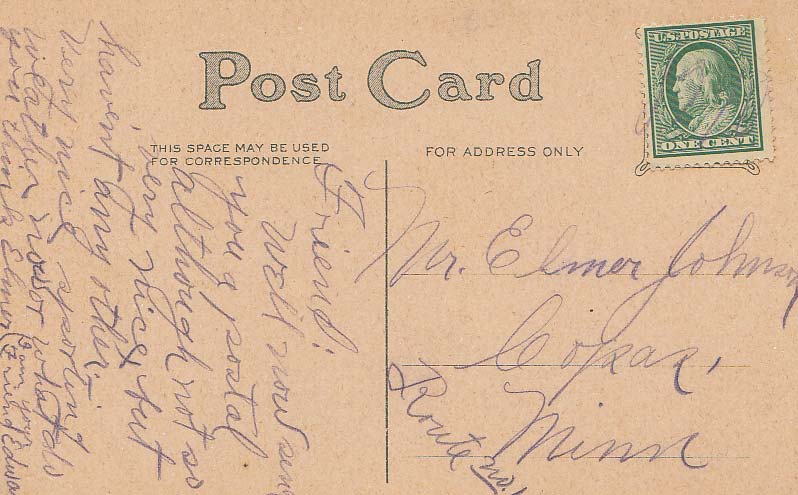 Post Card
U.S. POSTAGE
ONE CENT
THIS SPACE MAY BE USED
FOR CORRESPONDENCE
FOR ADDRESS ONLY
Mr. Elmer Johnson
Copas,
Minn
Route no. 1
Friend:
Well now send
you a postal
although not so
very nice, but
haven't any other.
Very nice sporting
weather now or what do
you think Elmer
I am your
Friend Edwa